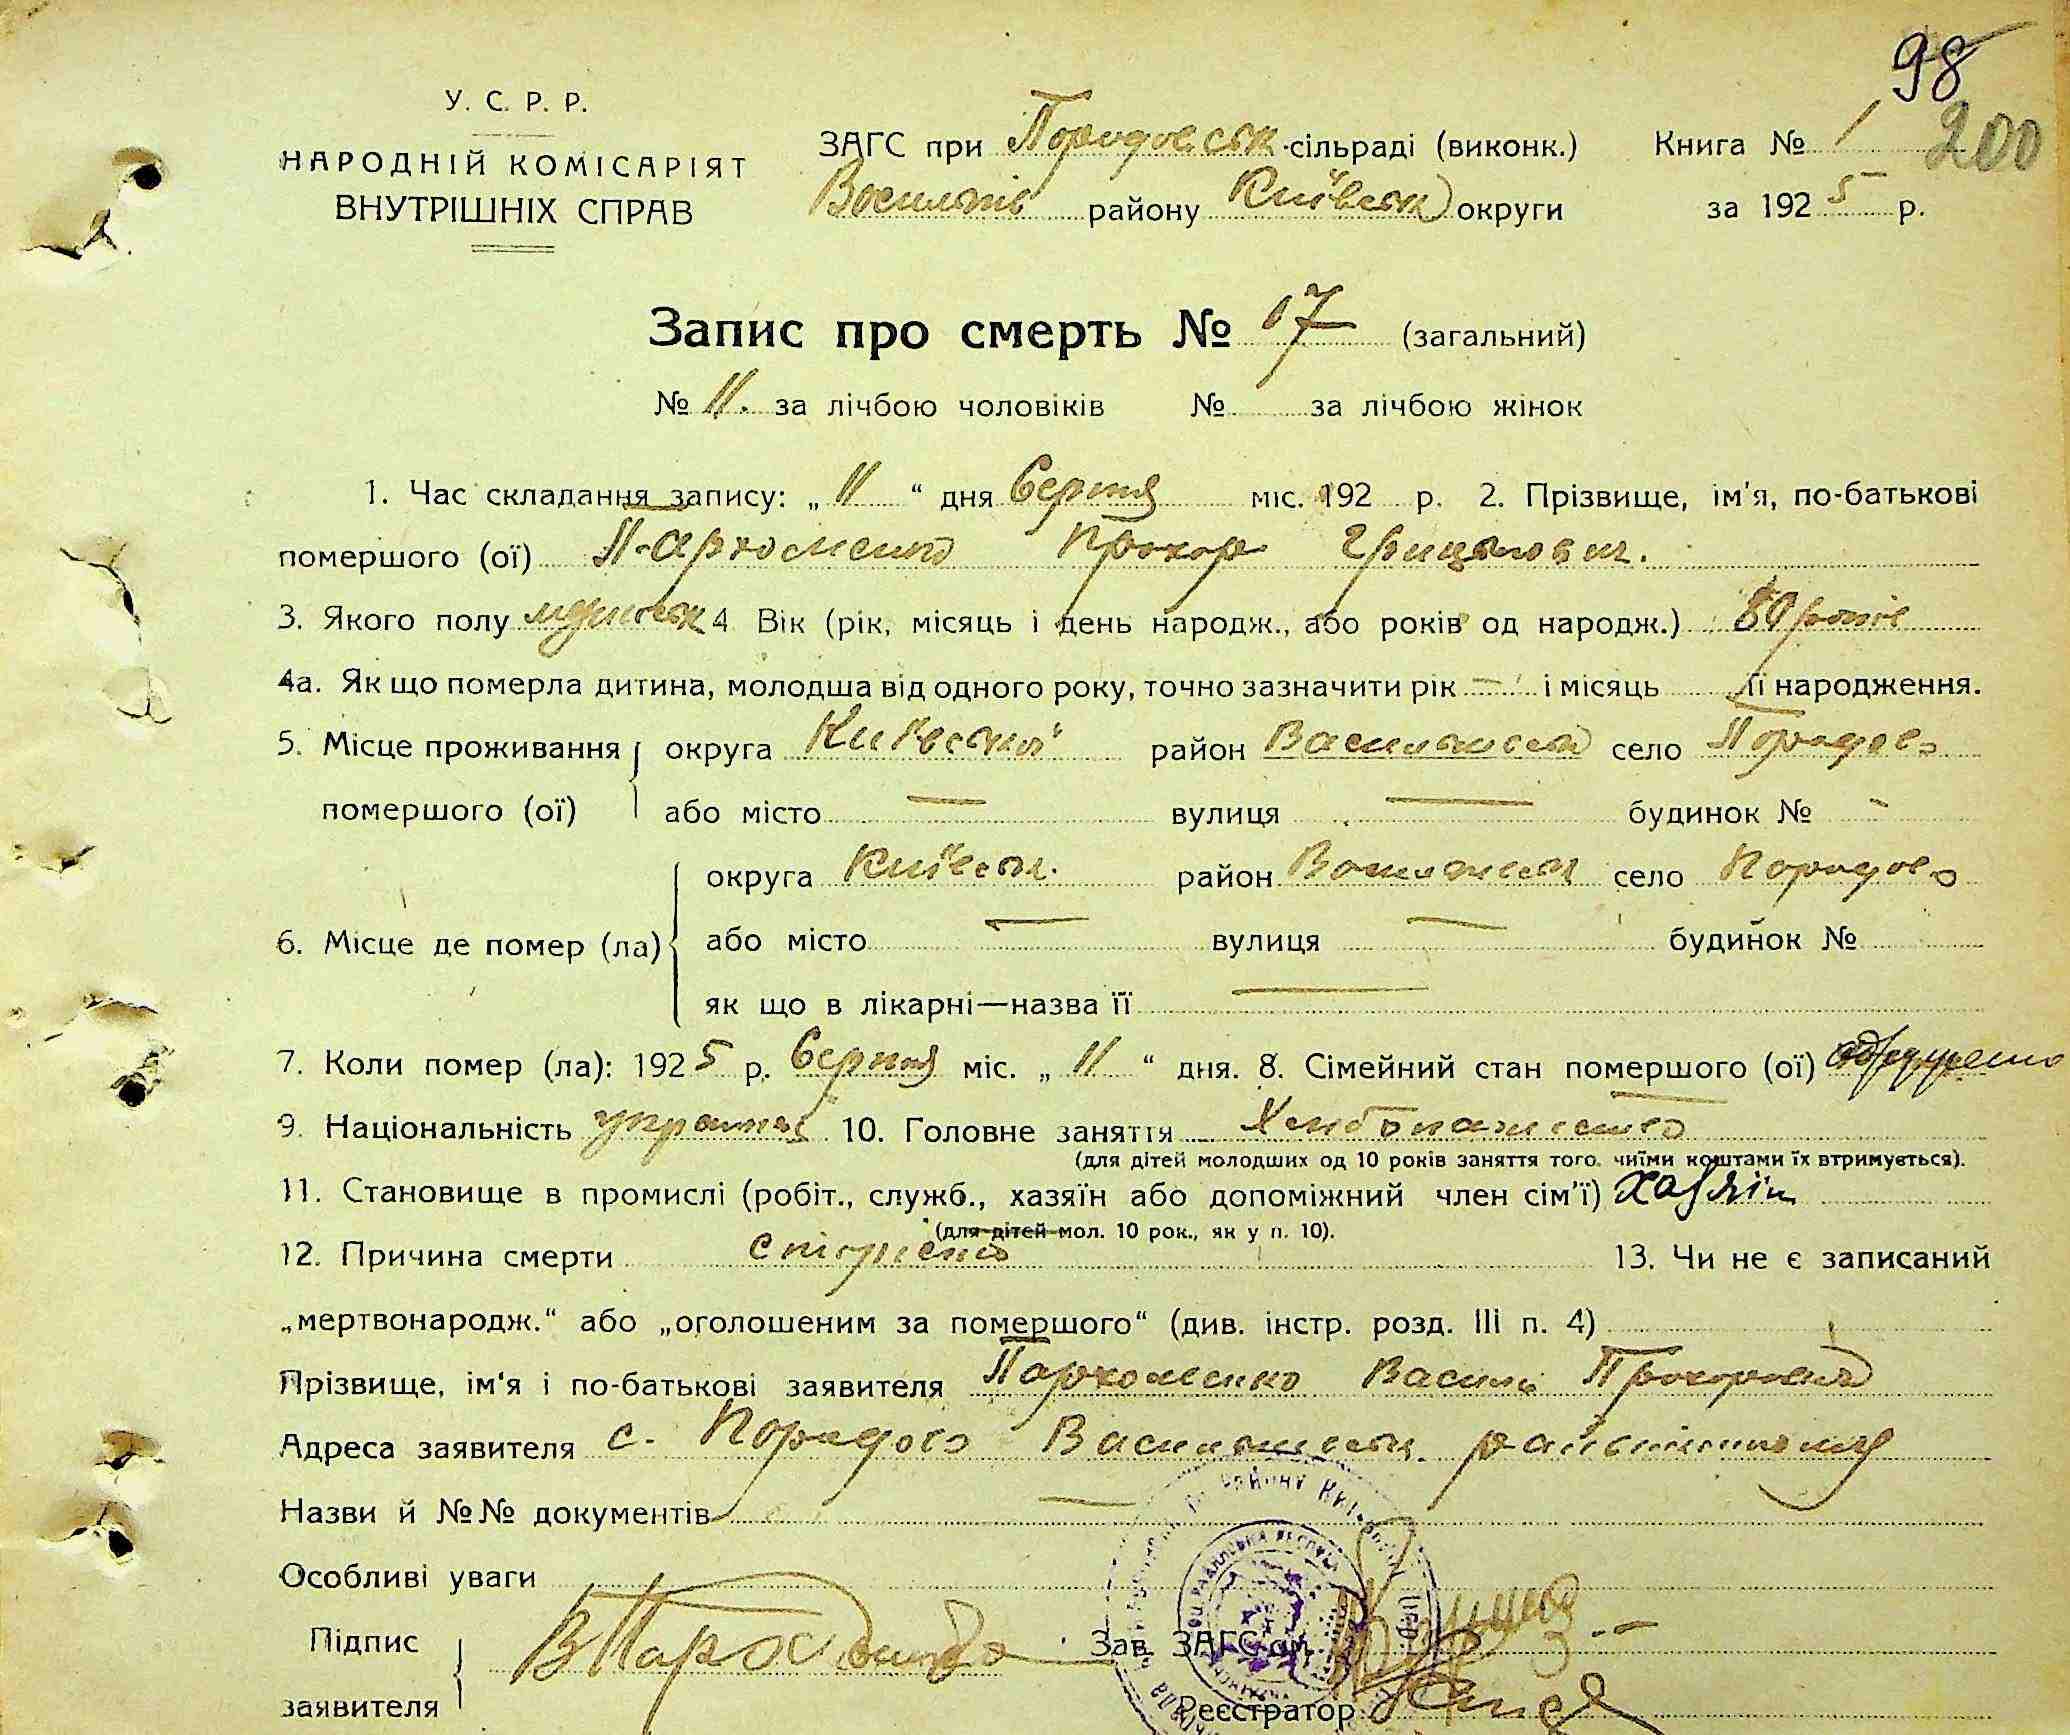 98
200
У. С. Р. Р.
НАРОДНІЙ КОМІСАРІЯТ
ВНУТРІШНІХ СПРАВ
ЗАГС при сільраді (виконк.) Книга № 1
району Київськ округи за 1925 р.
Запис про смерть № 17 (загальний)
№ 11. за лічбою чоловіків № за лічбою жінок
1. Час складання запису: „ 11 “ дня Серпня міс. 192 р. 2. Прізвище, ім'я, по-батькові
помершого (ої) Пархоменко Прохор Грицькович.
3. Якого полу 4 Вік (рік, місяць і день народж., або років од народж.) 80 років
4а. Як що померла дитина, молодша від одного року, точно зазначити рік — і місяць її народження.
5. Місце проживання округа Київської район село
помершого (ої) або місто — вулиця — будинок № -
округа Київськ. район село
6. Місце де помер (ла) або місто — вулиця — будинок №
як що в лікарні—назва її —
7. Коли помер (ла): 1925 р. Серпня міс. „ 11 “ дня. 8. Сімейний стан помершого (ої)
9. Національність 10. Головне заняття Хліборобство
(для дітей молодших од 10 років заняття того, чиїми коштами їх втримується).
11. Становище в промислі (робіт., служб., хазяїн або допоміжний член сім'ї) Хазяїн
(для дітей мол. 10 рок., як у п. 10).
12. Причина смерти 13. Чи не є записаний
„мертвонародж.“ або „оголошеним за помершого“ (див. інстр. розд. III п. 4)
Прізвище, ім'я і по-батькові заявителя Пархоменко Василь Прохорович
Адреса заявителя с.
Назви й №№ документів —
Особливі уваги
Підпис
заявителя
Зав. ЗАГС'ом
Реєстратор